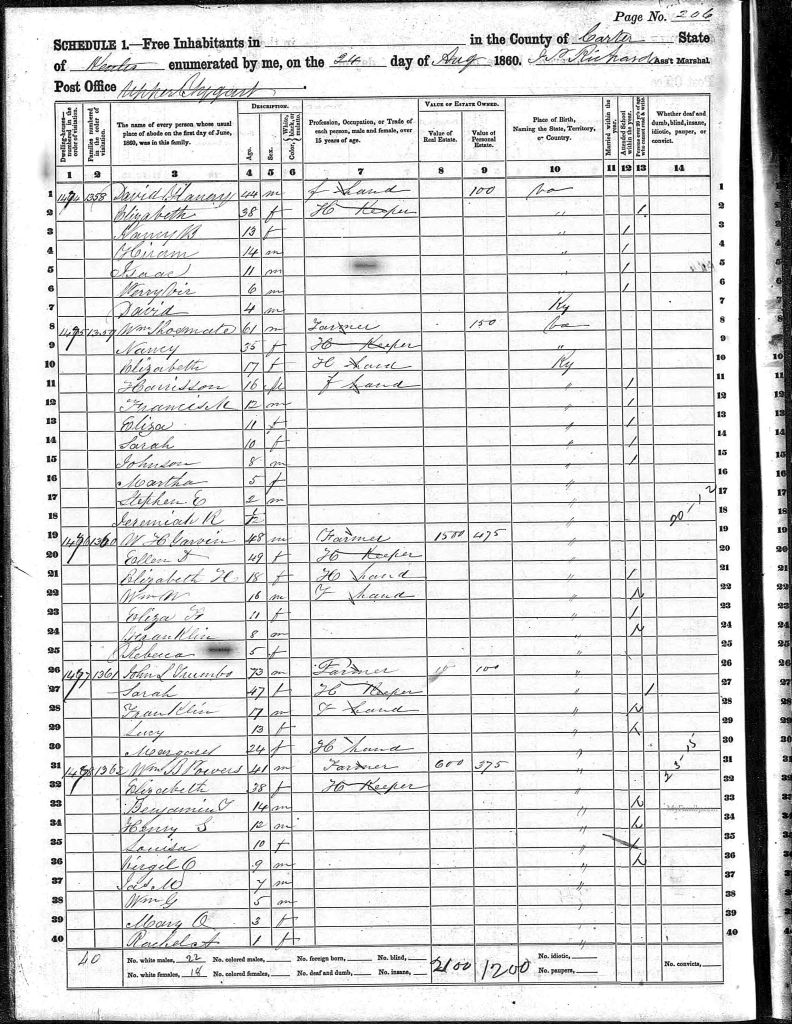 Page No. 206
SCHEDULE 1.—Free Inhabitants in in the County of Carter State
of enumerated by me, on the 24 day of Aug 1860. Ass't Marshal
Post Office
Dwelling-houses numbered in the order of visitation.
Families numbered in the order of visitation.
The name of every person whose usual place of abode on the first day of June, 1860, was in this family.
DESCRIPTION.
Age.
Sex.
Color, White, black, or mulatto.
Profession, Occupation, or Trade of each person, male and female, over 15 years of age.
VALUE OF ESTATE OWNED.
Value of Real Estate.
Value of Personal Estate.
Place of Birth, Naming the State, Territory, or Country.
Married within the year.
Attended School within the year.
Whether deaf and dumb, blind, insane, idiotic, pauper, or convict.
1 2 3 4 5 6 7 8 9 10 11 12 13 14
1 1474 1358 David 44 m f hand 100 va 1
2 Elizabeth 38 f H Keeper " / 2
3 Nancy B 13 f " / 3
4 Hiram 14 m " / 4
5 Isaac 11 m " / 5
6 6 m " / 6
7 David 4 m Ky 7
8 1475 1359 Wm Shoemate 61 m Farmer 150 va 8
9 Nancy 35 f H Keeper " 9
10 Elizabeth 17 f H hand Ky 10
11 Harrisson 16 m f hand " / 11
12 Francis M 12 m " / 12
13 Eliza 11 f " / 13
14 Sarah 10 f " / 14
15 Johnson 8 m " / 15
16 Martha 5 f " 16
17 Stephen C 2 m " 17
18 Jeremiah R " 18
19 1476 1360 W H 48 m Farmer 1500 475 " 19
20 Ellen D 49 f H Keeper 20
21 Elizabeth H 18 f H hand " / 21
22 Wm W 16 m F hand " 22
23 Eliza 11 f " / 23
24 Franklin 8 m " 24
25 Rebecca 5 f " 25
26 1477 1361 John L Trumbo 73 m Farmer 100 " 26
27 Sarah 47 f H Keeper " / 27
28 Franklin 17 m F hand " 28
29 Lucy 13 f " 29
30 Margaret 24 f H hand " 30
31 1478 1362 Wm B Powers 41 m Farmer 600 375 " 31
32 Elizabeth 38 f H Keeper " 32
33 Benjamin F 14 m " 33
34 Henry S 12 m " 34
35 Louisa 10 f " 35
36 Virgil C 9 m " 36
37 Jas M 7 m " 37
38 Wm G 5 m " 38
39 Mary O 3 f " 39
40 Rachel A 1 f " 40
40 No. white males, 22 No. colored males, No. foreign born, No. blind, 2100 1200 No. idiotic, No. convicts,
No. white females, 18 No. colored females, No. deaf and dumb, No. insane, No. paupers,